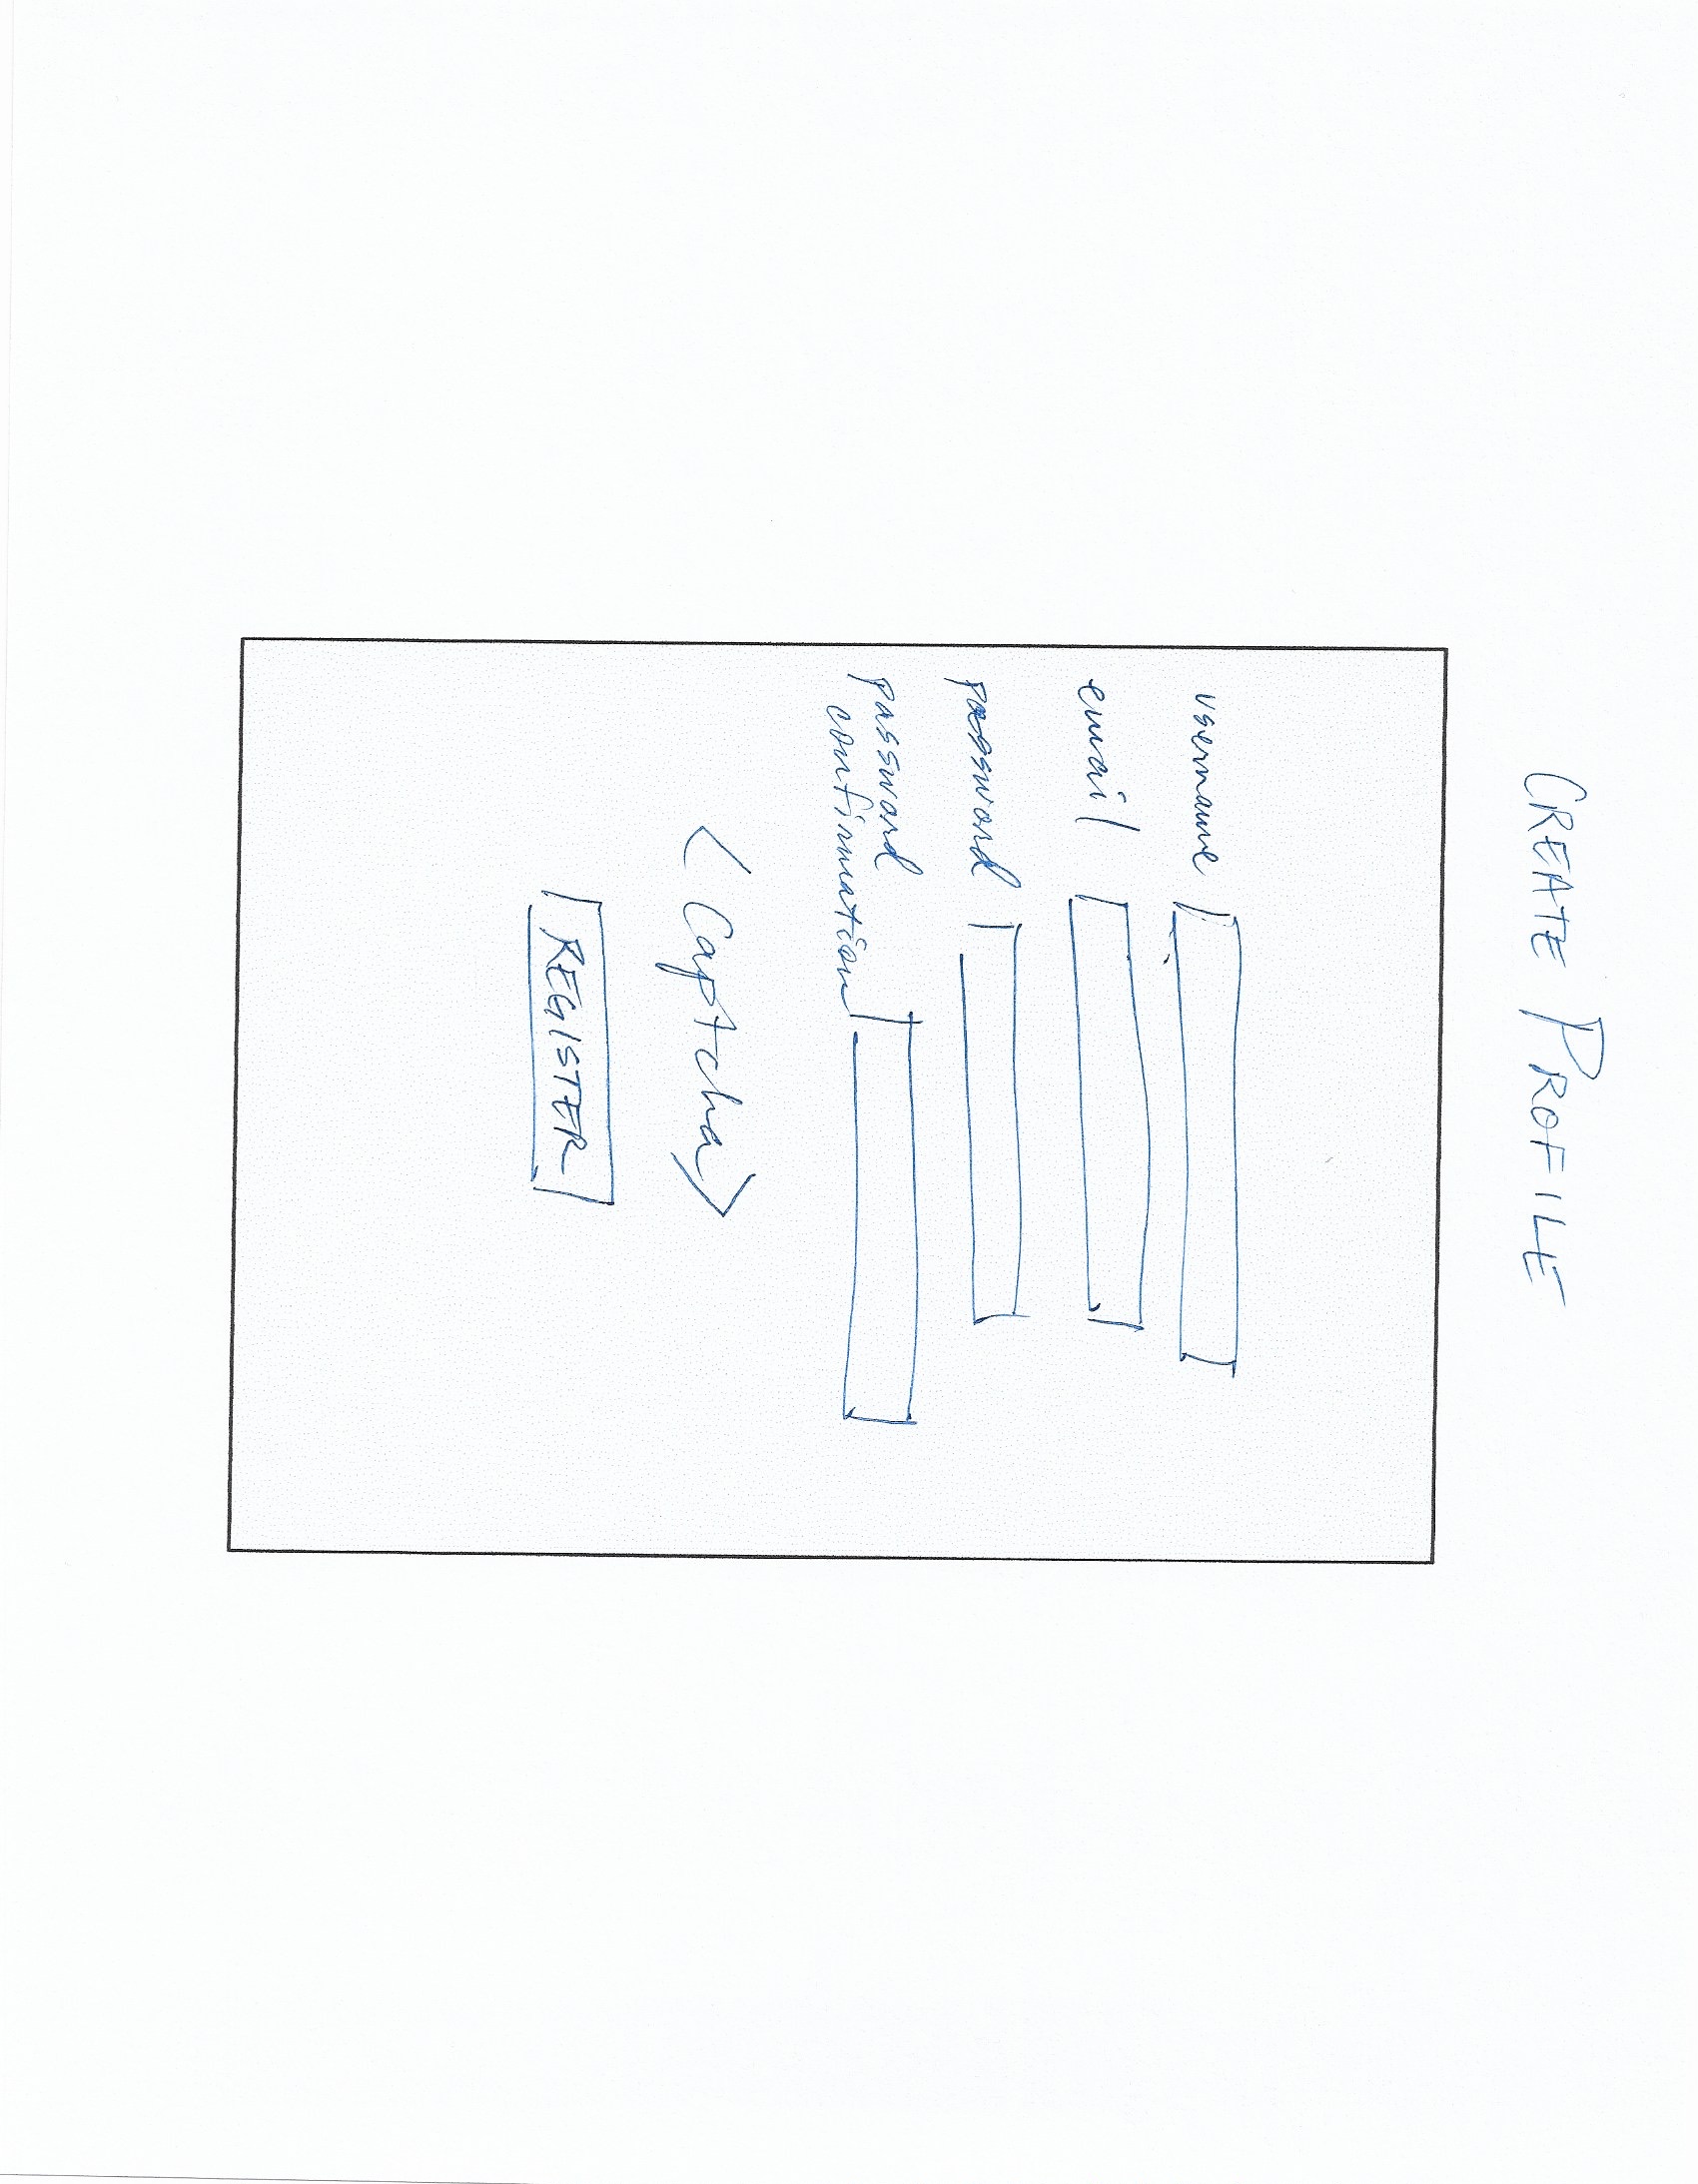 CREATE PROFILE
username
email
password
password
confirmation
< Captcha >
REGISTER